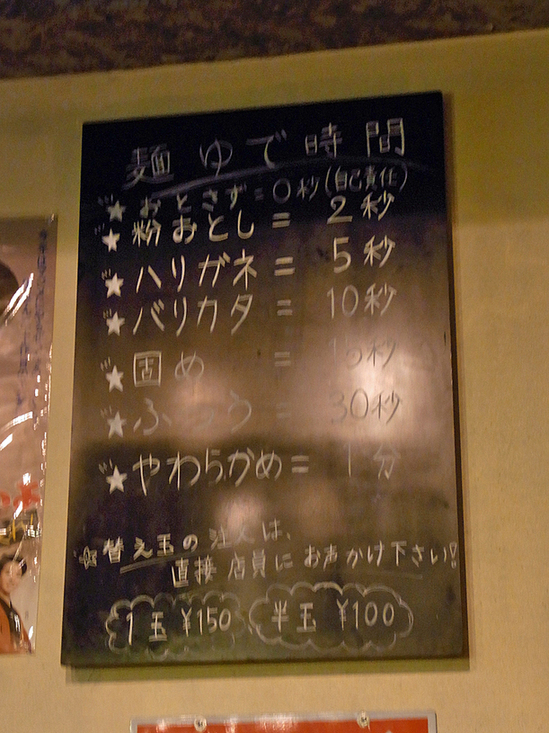 麺ゆで時間
★おとさず=0秒(自己責任)
★粉おとし=2秒
★ハリガネ=5秒
★バリカタ=10秒
★固め=15秒
★ふつう=30秒
★やわらかめ=1分
☆替え玉の注文は、
直接店員にお声かけ下さい!
1玉¥150、半玉¥100